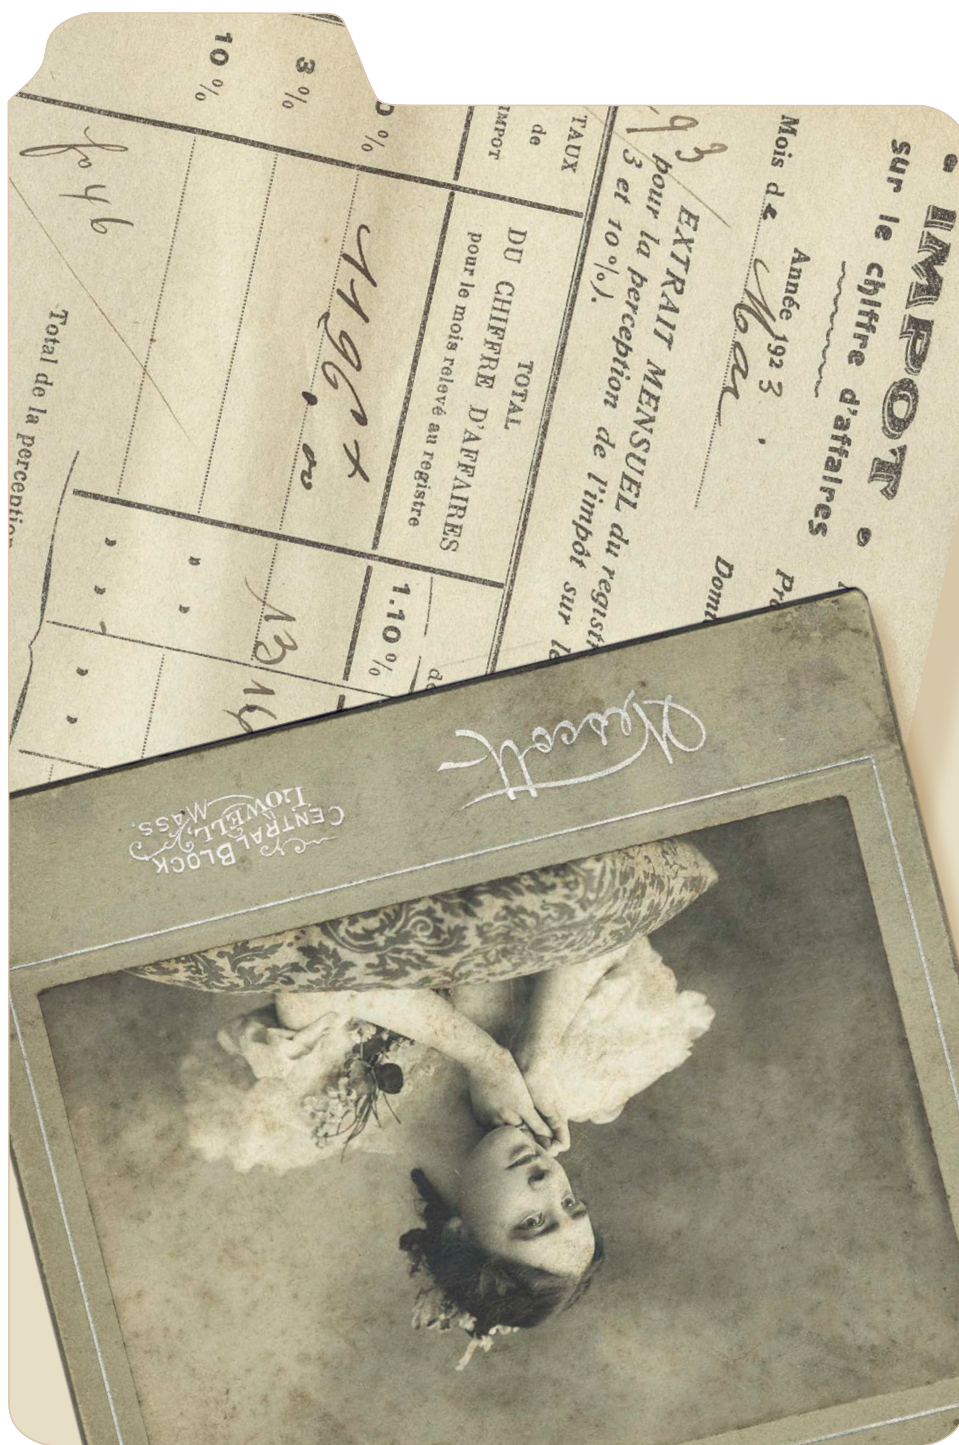 • IMPOT •
sur le chiffre d'affaires
Année 1923
Mois de Mai
EXTRAIT MENSUEL du regist
pour la perception de l'impôt sur le
3 et 10 %).
TAUX
de
IMPOT
TOTAL
DU CHIFFRE D'AFFAIRES
pour le mois relevé au registre
1.10 %
de
0 %
3 %
10 %
1196
13 14
Total de la perception
Wescott
CENTRAL BLOCK
LOWELL,
MASS.